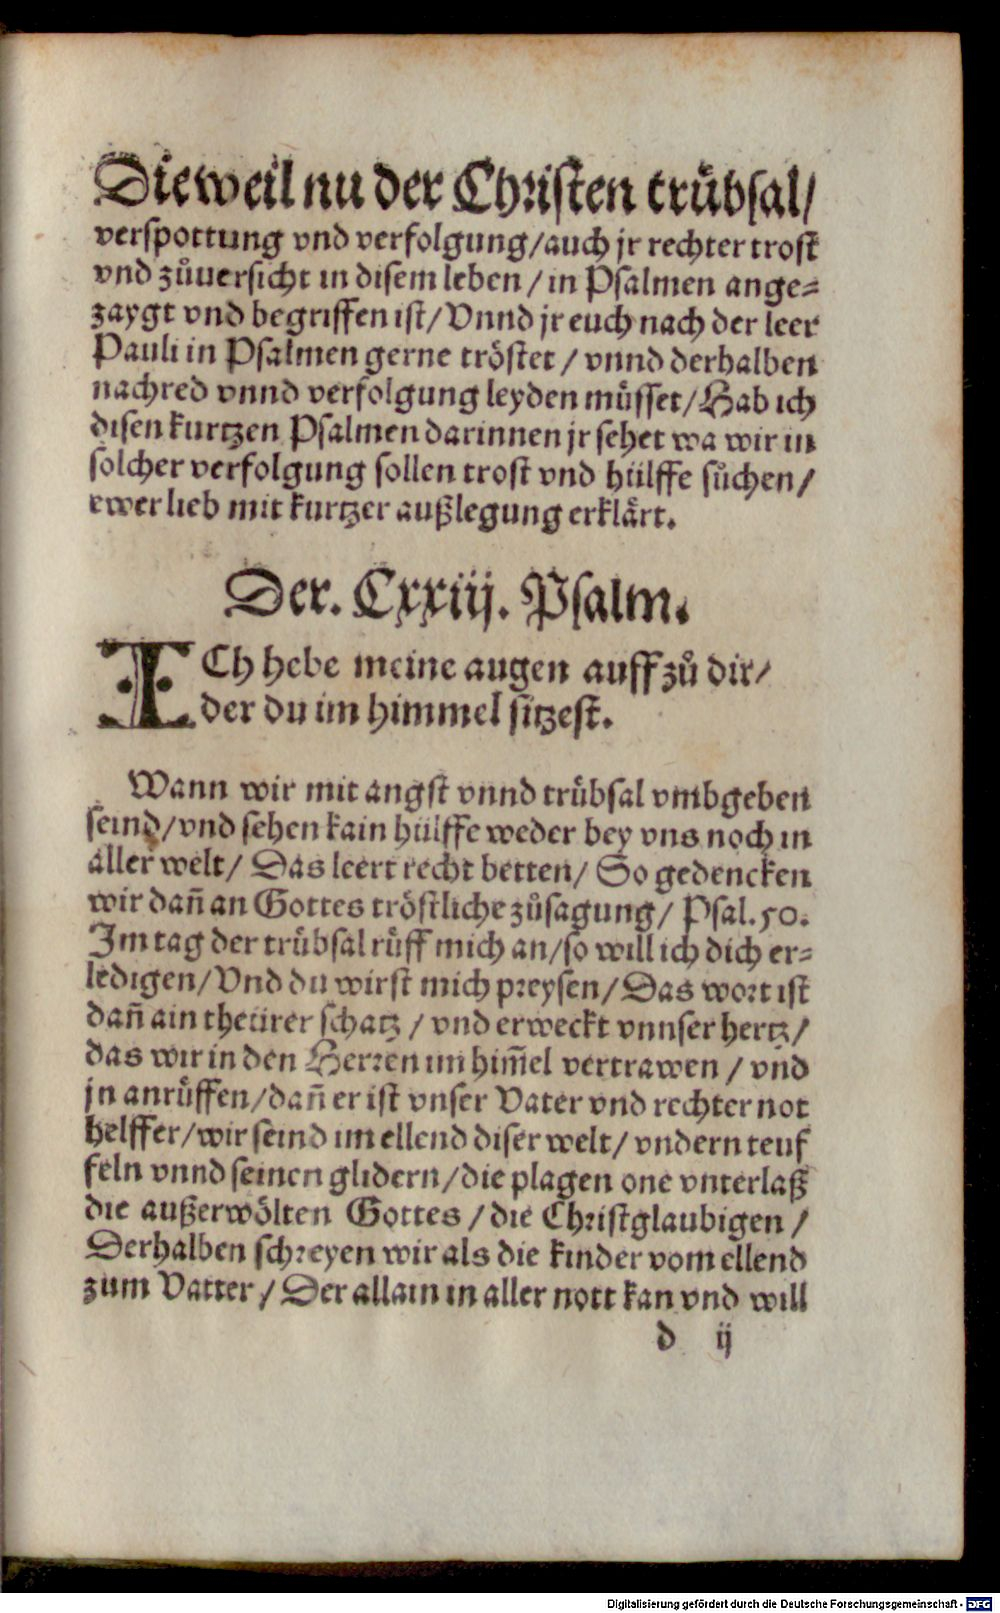 Dieweil nu der Christen trůbsal/
verspottung vnd verfolgung/auch jr rechter trost
vnd zůuersicht in disem leben / in Psalmen ange⸗
zaygt vnd begriffen ist/ Vnnd jr euch nach der leer
Pauli in Psalmen gerne tröstet / vnnd derhalben
nachred vnnd verfolgung leyden müsset/ Hab ich
disen kurtzen Psalmen darinnen jr sehet wa wir in
solcher verfolgung sollen trost vnd hülffe sůchen/
ewer lieb mit kurtzer außlegung erklärt.
Der. Cxxiij. Psalm.
ICh hebe meine augen auff zů dir/
der du im himmel sitzest.
Wann wir mit angst vnnd trübsal vmbgeben
seind/vnd sehen kain hülffe weder bey vns noch in
aller welt/ Das leert recht betten/ So gedencken
wir dañ an Gottes tröstliche zůsagung/ Psal. 50.
Im tag der trübsal rüff mich an/so will ich dich er⸗
ledigen/ Vnd du wirst mich preysen/ Das wort ist
dañ ain theürer schatz / vnd erweckt vnnser hertz/
das wir in den Herren im him̃el vertrawen / vnd
jn anrüffen/dañ er ist vnser Vater vnd rechter not
helffer/wir seind im ellend diser welt/ vndern teuf
feln vnnd seinen glidern/die plagen one vnterlaß
die außerwölten Gottes / die Christglaubigen /
Derhalben schreyen wir als die kinder vom ellend
zum Vatter / Der allain in aller nott kan vnd will
d ij
Digitalisierung gefördert durch die Deutsche Forschungsgemeinschaft - DFG